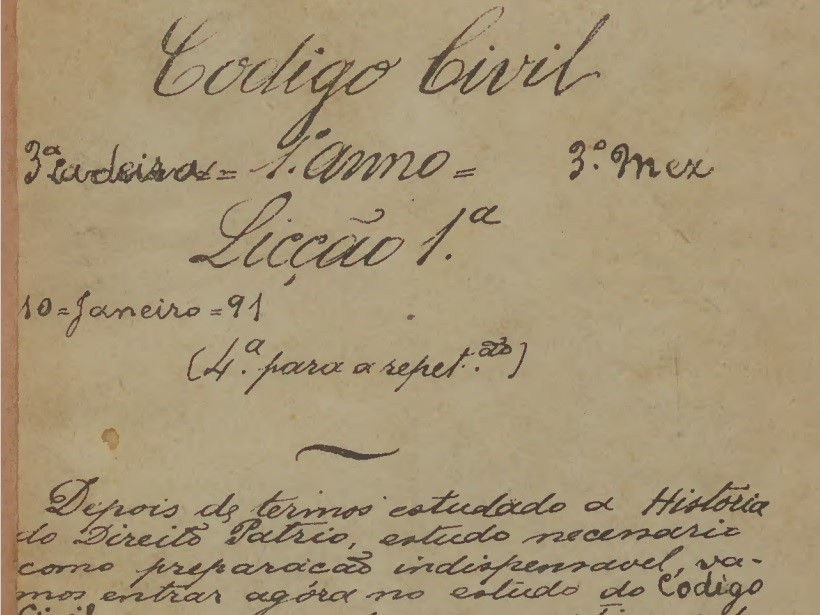 Codigo Civil
3ª Cadeira = 1.º Anno = 3.º Mez
Licção 1.ª
10 = Janeiro = 91
(4.ª para a repet.ão)
Depois de termos estudado a Historia
do Direito Patrio, estudo necessario
como preparacão indispensavel, va-
mos entrar agóra no estudo do Codigo
Civil